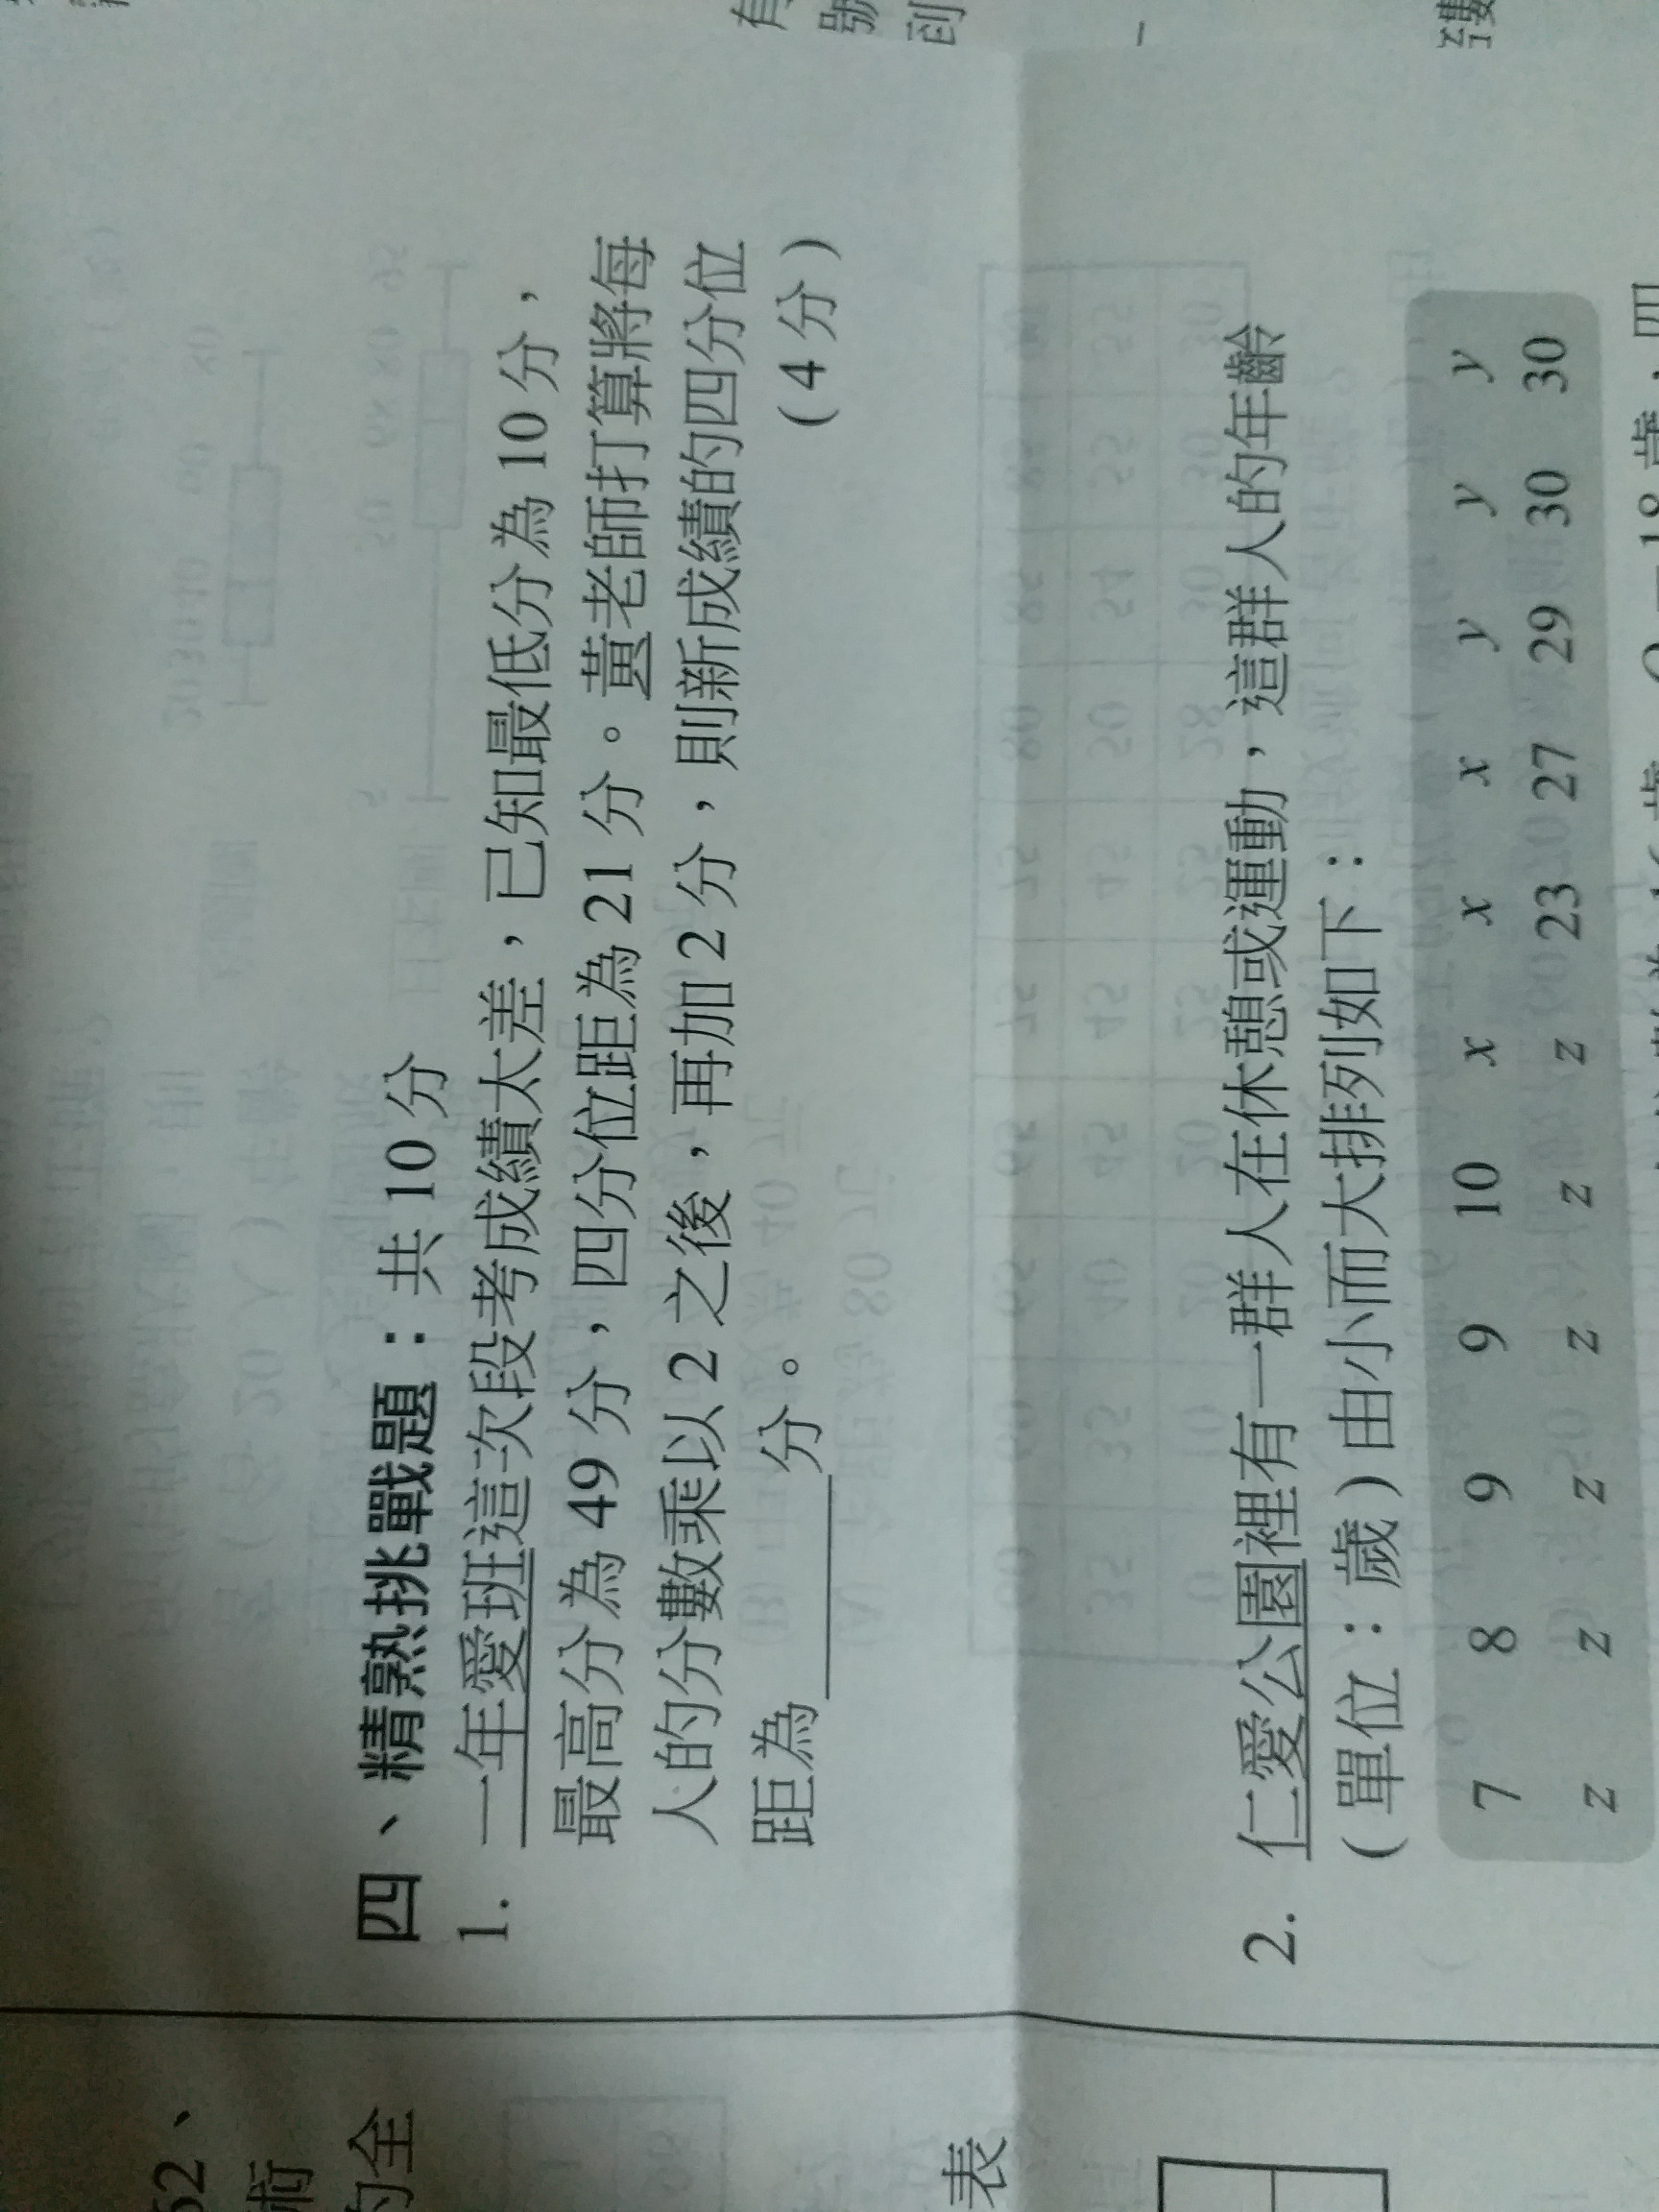 四、精熟挑戰題：共 10 分
1. 一年愛班這次段考成績太差，已知最低分為 10 分，
最高分為 49 分，四分位距為 21 分。黃老師打算將每
人的分數乘以 2 之後，再加 2 分，則新成績的四分位
距為______分。 (4 分)
2. 仁愛公園裡有一群人在休憩或運動，這群人的年齡
(單位：歲) 由小而大排列如下：
7 8 9 9 10 x x x y y y
z z z z z z 23 27 29 30 30
52、
術
的全
表